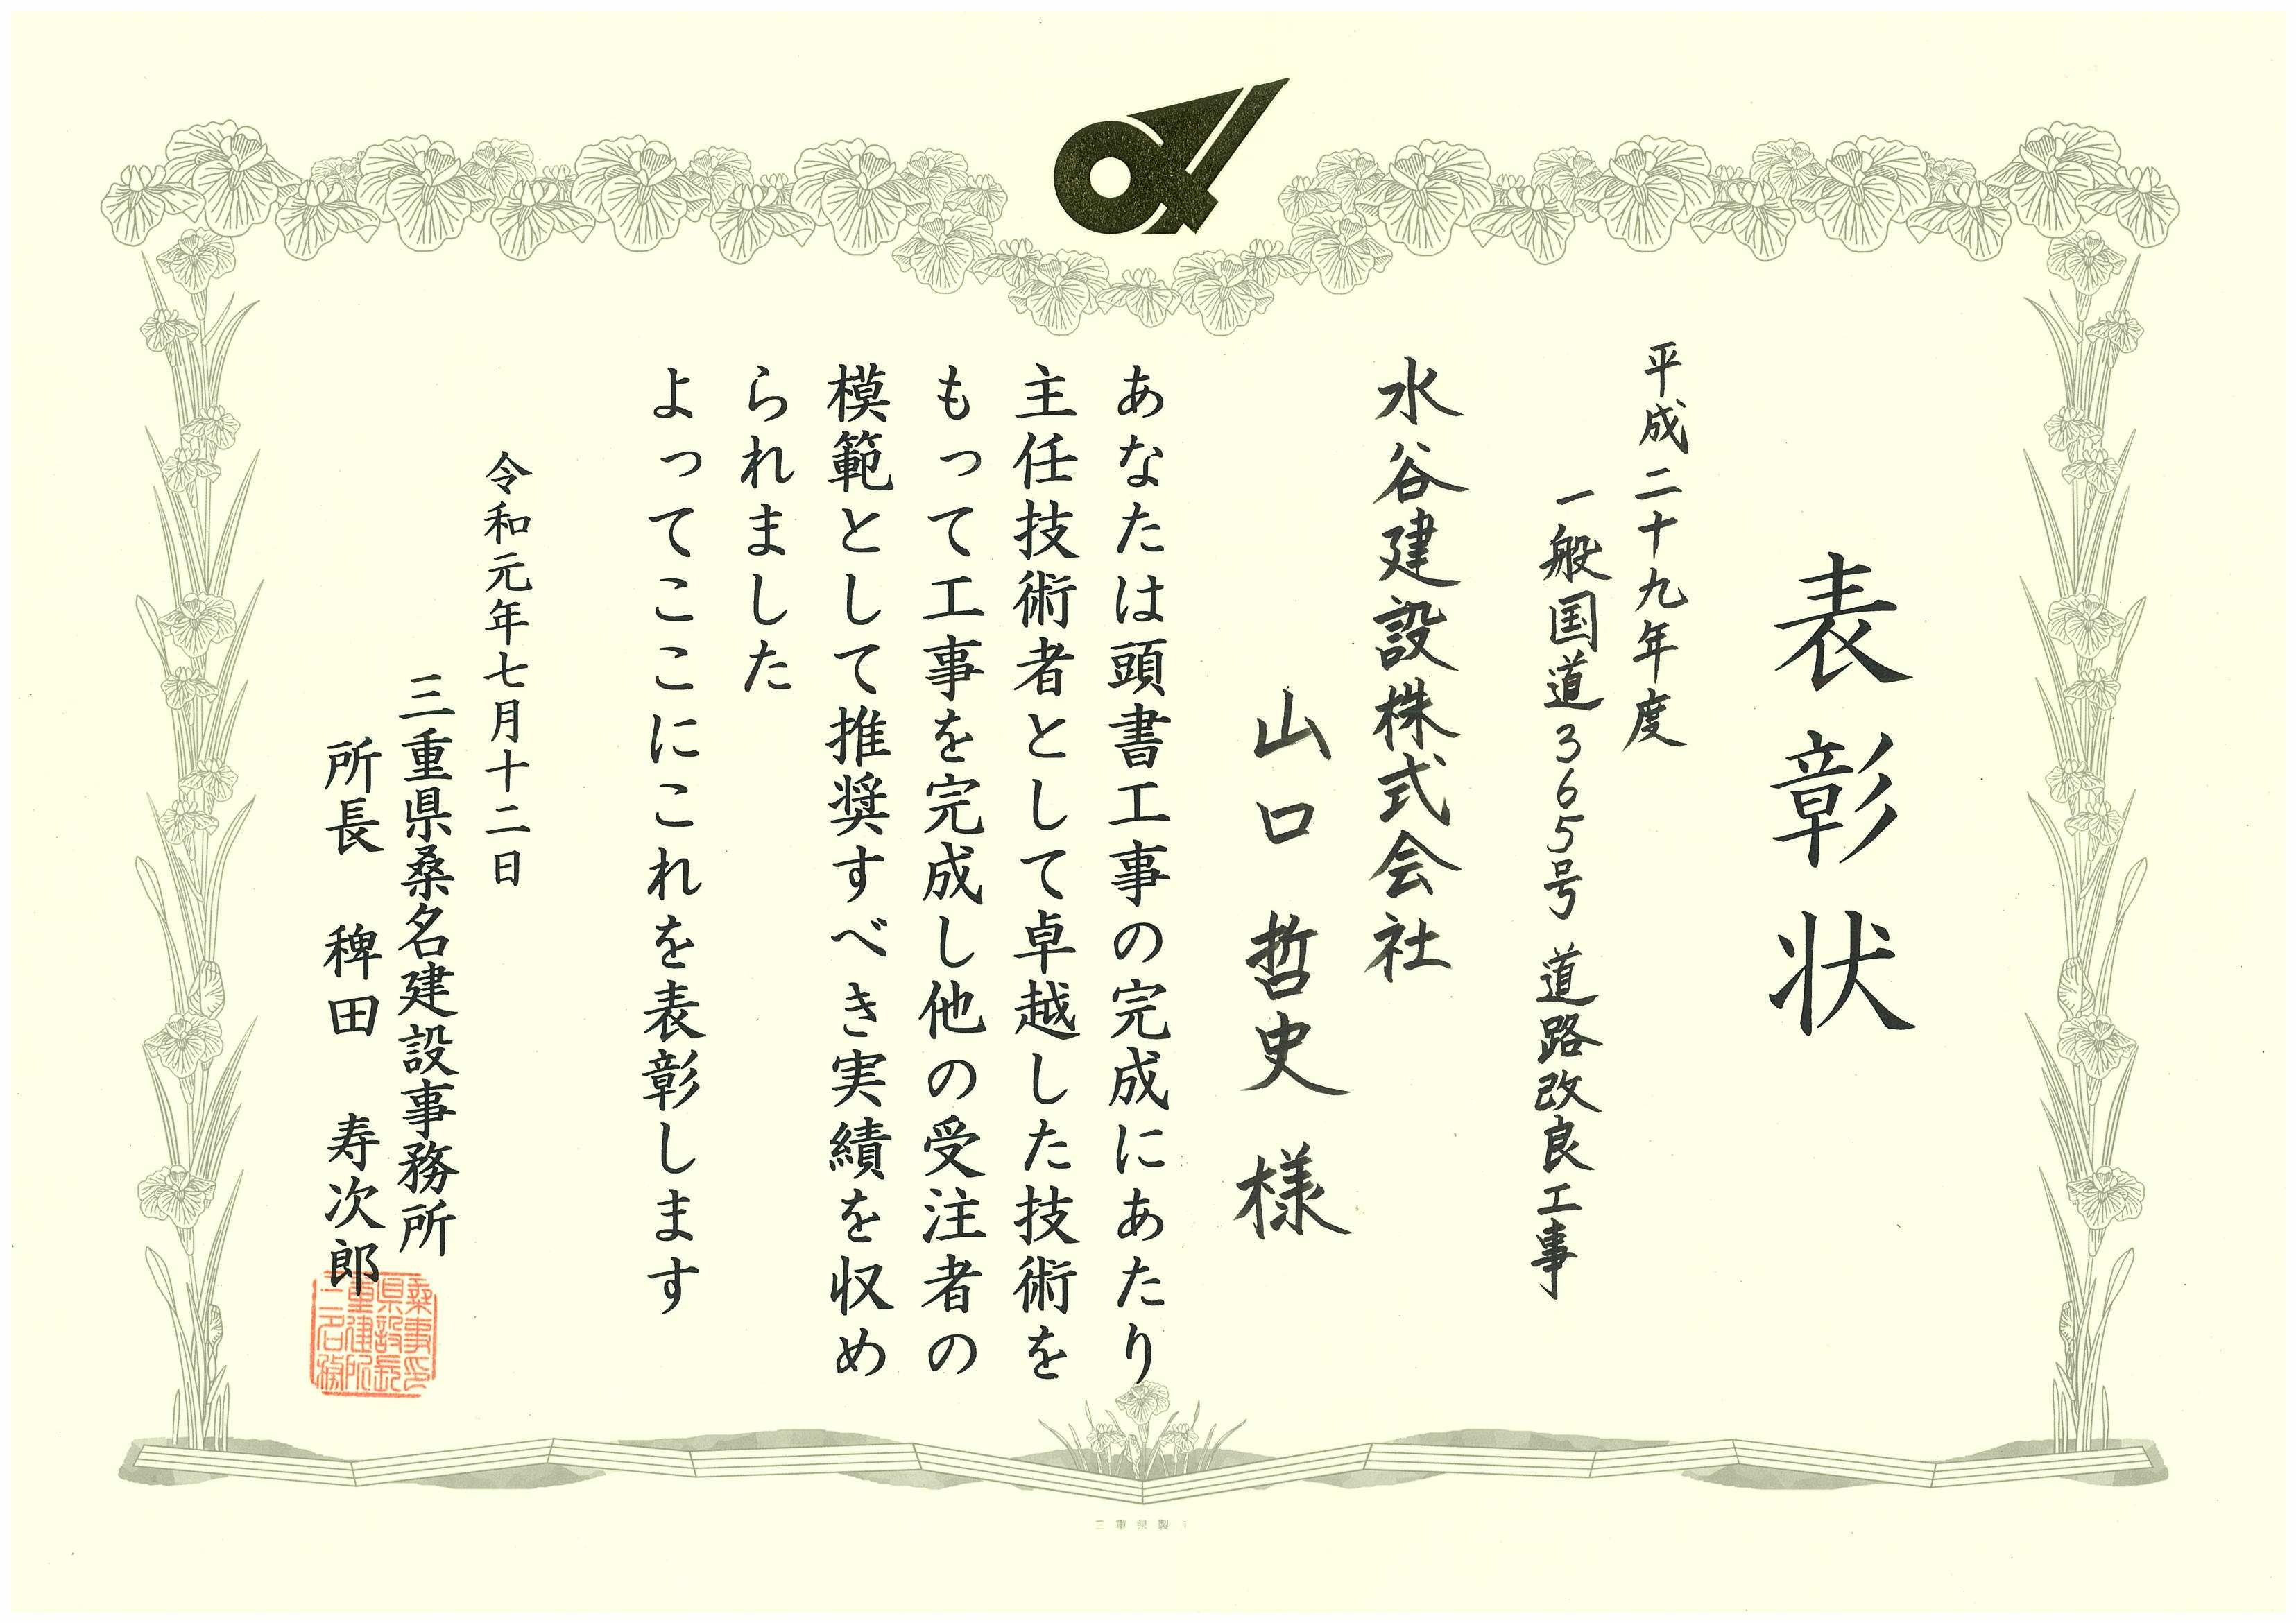 表彰状
平成二十九年度
一般国道365号 道路改良工事
水谷建設株式会社
山口 哲史 様
あなたは頭書工事の完成にあたり
主任技術者として卓越した技術を
もって工事を完成し他の受注者の
模範として推奨すべき実績を収め
られました
よってここにこれを表彰します
令和元年七月十二日
三重県桑名建設事務所
所長 稗田 寿次郎
桑事印
県設長
重建所
三名務
三重県製1